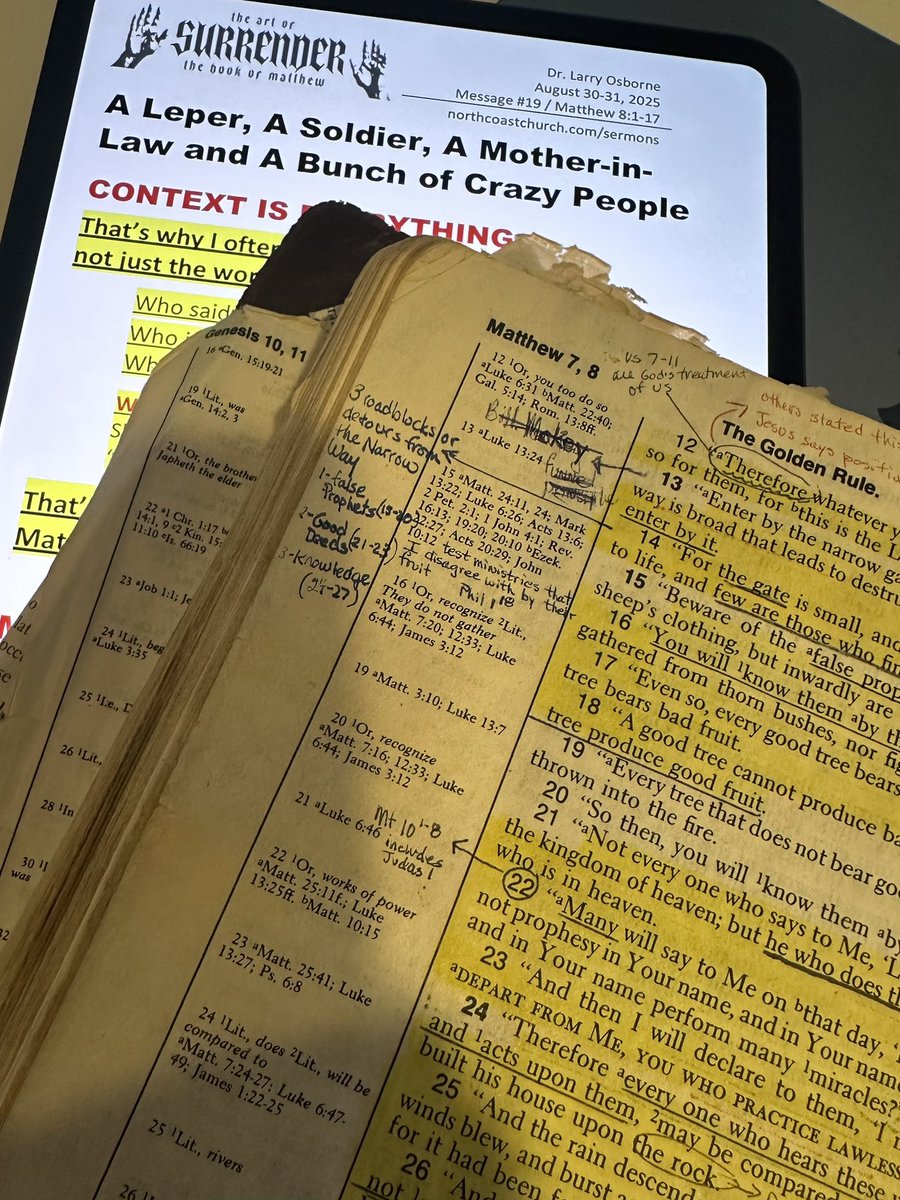 the art of
SURRENDER
the book of matthew
Dr. Larry Osborne
August 30-31, 2025
Message #19 / Matthew 8:1-17
northcoastchurch.com/sermons
A Leper, A Soldier, A Mother-in-
Law and A Bunch of Crazy People
CONTEXT IS
That's why I
not just the
Who said
Who
That'
Genesis 10, 11
16 ªGen. 15:19-21
19 ¹Lit., was
ªGen. 14:2, 3
21 ¹Or, the brother
Japheth the elder
22 ª1 Chr. 1:17
14:1, 9 ᶜ2 Kin. 15:
11:10 ᵉIs. 66:19
23 ªJob 1:1;
24 ¹Lit.,
ªLuke 3:35
25 ¹I.e.,
26 ¹Lit.,
28 ¹In
30
was
Matthew 7, 8
12 ¹Or, you too do so
ªLuke 6:31 ᵇMatt. 22:40;
Gal. 5:14; Rom. 13:8ff.
13 ªLuke 13:24
15 ªMatt. 24:11, 24; Mark
13:22; Luke 6:26; Acts 13:6;
2 Pet. 2:1; 1 John 4:1; Rev.
16:13; 19:20; 20:10 ᵇEzek.
22:27; Acts 20:29; John
10:12
16 ¹Or, recognize ²Lit.,
They do not gather
ªMatt. 7:20; 12:33; Luke
6:44; James 3:12
19 ªMatt. 3:10; Luke 13:7
20 ¹Or, recognize
ªMatt. 7:16; 12:33; Luke
6:44; James 3:12
21 ªLuke 6:46
22 ¹Or, works of power
ªMatt. 25:11f.; Luke
13:25ff. ᵇMatt. 10:15
23 ªMatt. 25:41; Luke
13:27; Ps. 6:8
24 ¹Lit., does ²Lit., will be
compared to
ªMatt. 7:24-27; Luke 6:47-
49; James 1:22-25
25 ¹Lit., rivers
3 roadblocks or
detours from
the Narrow
Way
1-false
Prophets (15-20)
2-Good
Deeds (21-23)
3-Knowledge
(24-27)
test ministries that
I disagree with by their
fruit
Phil 1:18
Mt 10 1-8
includes
Judas!
vs 7-11
are God's treatment
of us
others stated this
Jesus says
The Golden Rule.
12 "ªTherefore whatever
so for them, for ᵇthis is the
13 "ªEnter by the narrow
way is broad that leads to
enter by it.
14 "For the gate is small, and
to life, and few are those who
15 "Beware of the ªfalse
sheep's clothing, but inwardly are
16 "You will ¹know them ªby
gathered from thorn bushes, nor
17 "Even so, every good tree bears
tree bears bad fruit.
18 "A good tree cannot produce
tree produce good fruit.
19 "ªEvery tree that does not bear
thrown into the fire.
20 "So then, you will ¹know them ªby
21 "ªNot every one who says to Me,
the kingdom of heaven; but he who does
who is in heaven.
22 "ªMany will say to Me on ᵇthat day,
not prophesy in Your name, and in Your
and in Your name perform many ¹miracles?'
23 "And then I will declare to them,
ªDEPART FROM ME, YOU WHO PRACTICE
24 "Therefore ªevery one who hears these
and ¹acts upon them, ²may be
built his house upon the rock.
25 "And the rain
winds blew, and burst
for it had been
26 "And
not